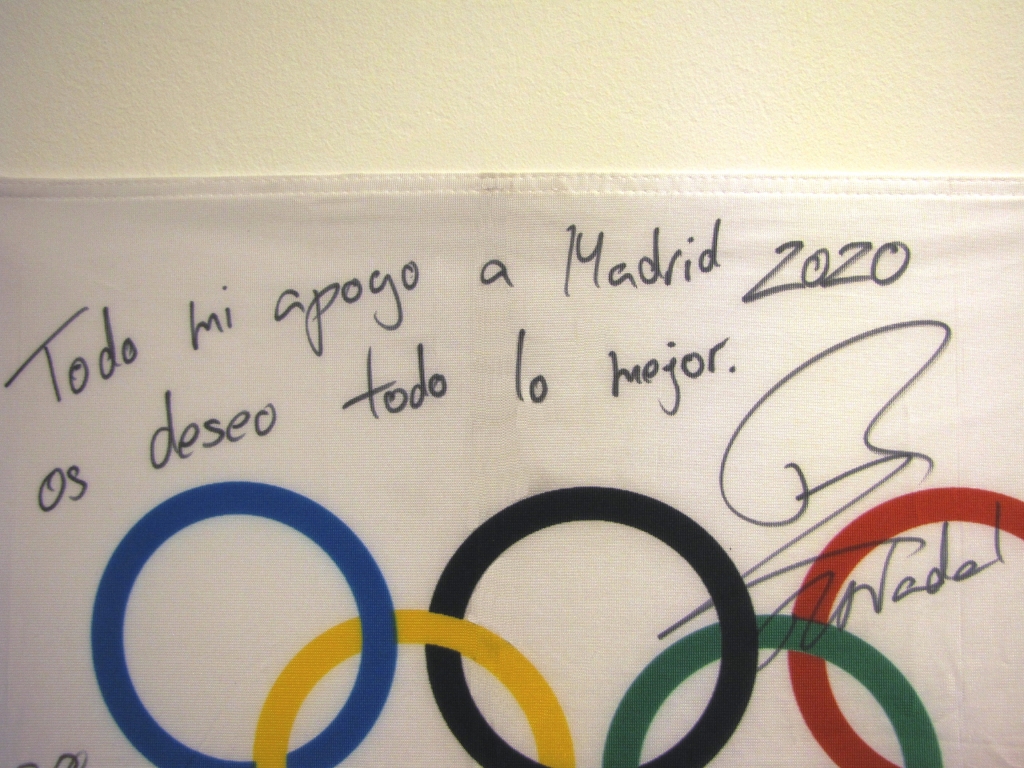 Todo mi apoyo a Madrid 2020
os deseo todo lo mejor.
Nadal